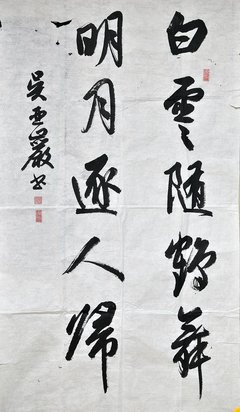 白雲随鶴舞
明月逐人歸
吴亚巖书